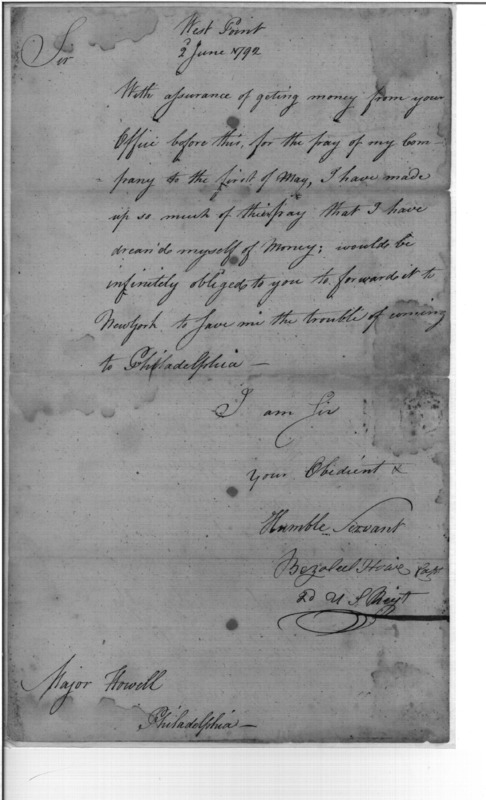 West Point
2d June 1792
Sir
With assurance of geting money from your
Office before this, for the pay of my Com-
pany to the first of May, I have made
up so much of their pay that I have
drean'd myself of Money; would be
infinitely obliged to you to forward it to
New York to save me the trouble of coming
to Philadelphia —
I am Sir
your Obedient &
Humble Servant
Bezaleel Howe Capt
2d U S Regt
Major Howell
Philadelphia —